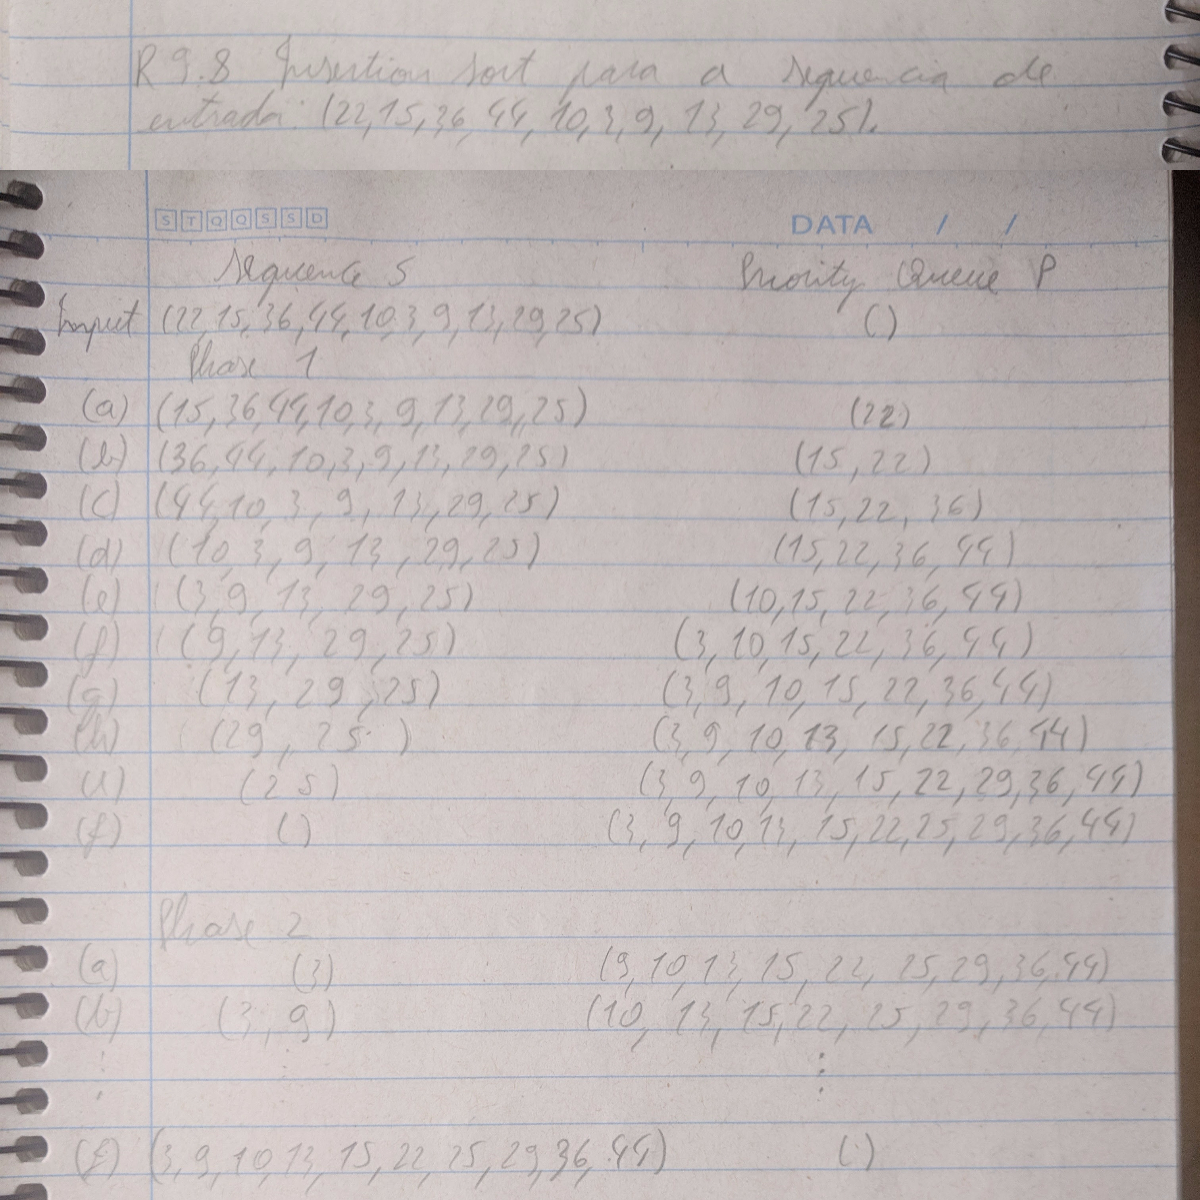 R 9.8 Insertion sort para a sequencia de
entrada: (22,15,36,44,10,3,9,13,29,25).
S T Q Q S S D DATA / /
Sequence S Priority Queue P
Input (22,15,36,44,10,3,9,13,29,25) ()
Phase 1
(a) (15,36,44,10,3,9,13,29,25) (22)
(b) (36,44,10,3,9,13,29,25) (15,22)
(c) (44,10,3,9,13,29,25) (15,22,36)
(d) (10,3,9,13,29,25) (15,22,36,44)
(e) (3,9,13,29,25) (10,15,22,36,44)
(f) (9,13,29,25) (3,10,15,22,36,44)
(g) (13,29,25) (3,9,10,15,22,36,44)
(h) (29,25) (3,9,10,13,15,22,36,44)
(i) (25) (3,9,10,13,15,22,29,36,44)
(f) () (3,9,10,13,15,22,25,29,36,44)
Phase 2
(a) (3) (9,10,13,15,22,25,29,36,44)
(b) (3,9) (10,13,15,22,25,29,36,44)
⋮ ⋮ ⋮
(f) (3,9,10,13,15,22,25,29,36,44) ()